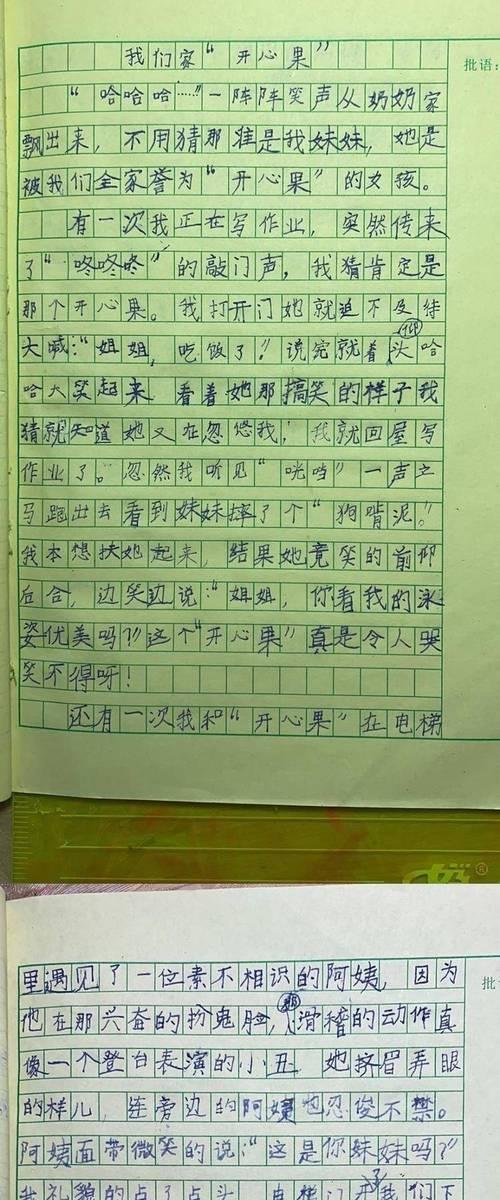 我们家“开心果”
批语：
“哈哈哈……”一阵阵笑声从奶奶家
飘出来，不用猜那准是我妹妹，她是
被我们全家誉为“开心果”的女孩。
有一次我正在写作业，突然传来
了“咚咚咚”的敲门声，我猜肯定是
那个开心果。我打开门她就迫不及待
大喊：“姐姐，吃饭了！”说完就着头哈
哈大笑起来 看着她那搞笑的样子我
猜就知道她又在忽悠我，我就回屋写
作业了。忽然我听见“咣当”一声立
马跑出去看到妹妹摔了个“狗啃泥。”
我本想扶她起来，结果她竟笑的前仰
后合，边笑边说：“姐姐，你看我的泳
姿优美吗？”这个“开心果”真是令人哭
笑不得呀！
还有一次我和“开心果”在电梯
里遇见了一位素不相识的阿姨 因为
批
他在那兴奋的扮鬼脸，那滑稽的动作真
像一个登台表演的小丑 她挤眉弄眼
的样儿，连旁边的阿姨也忍俊不禁。
阿姨面带微笑的说：“这是你妹妹吗？”
我礼貌的点了点头 电梯门开了我们下